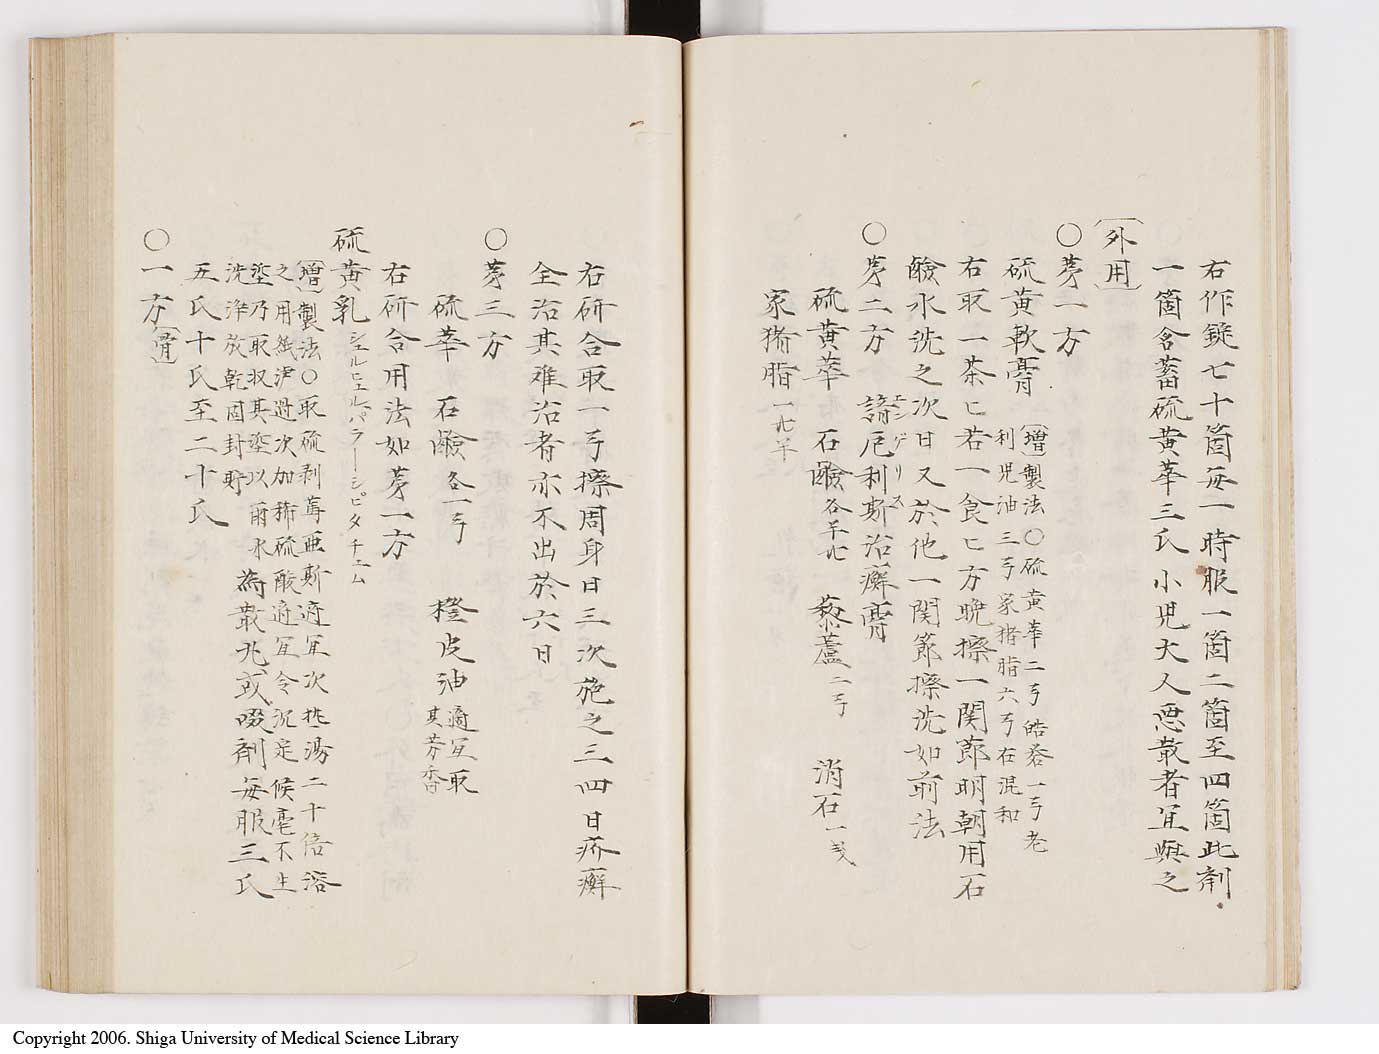 右作錠七十箇毎一時服一箇二箇至四箇此剤
一箇含蓄硫黄華三氏小児大人悪散者宜與之
〔外用〕
○第一方
硫黄軟膏
〔増〕製法○硫黄華二弓皓礬一弓老
利児油三弓家猪脂六弓右混和
右取一茶匕若一食匕方晩擦一関節明朝用石
鹸水洗之次日又於他一関節擦洗如前法
○第二方 諳厄利斯治癬膏
エンゲリス
硫黄華 石鹸各半比 藜蘆二弓 消石一戔
家猪脂一比半
右研合取一弓擦周身日三次施之三四日疥癬
全治其難治者亦不出於六日
○第三方
硫華 石鹸各一弓 橙皮油適宜取
其芳香
右研合用法如第一方
硫黄乳 シュルヒュルパラーシピタチュム
〔増〕製法○取硫剥篤亜斯適宜次投湯二十倍溶
之用紙濾過次加稀硫酸適宜令沉定候毫不生
埿乃取収其埿以雨水
洗浄放乾固封貯
為散丸或啜剤毎服三氏
五氏十氏至二十氏
○一方〔骨〕
Copyright 2006. Shiga University of Medical Science Library